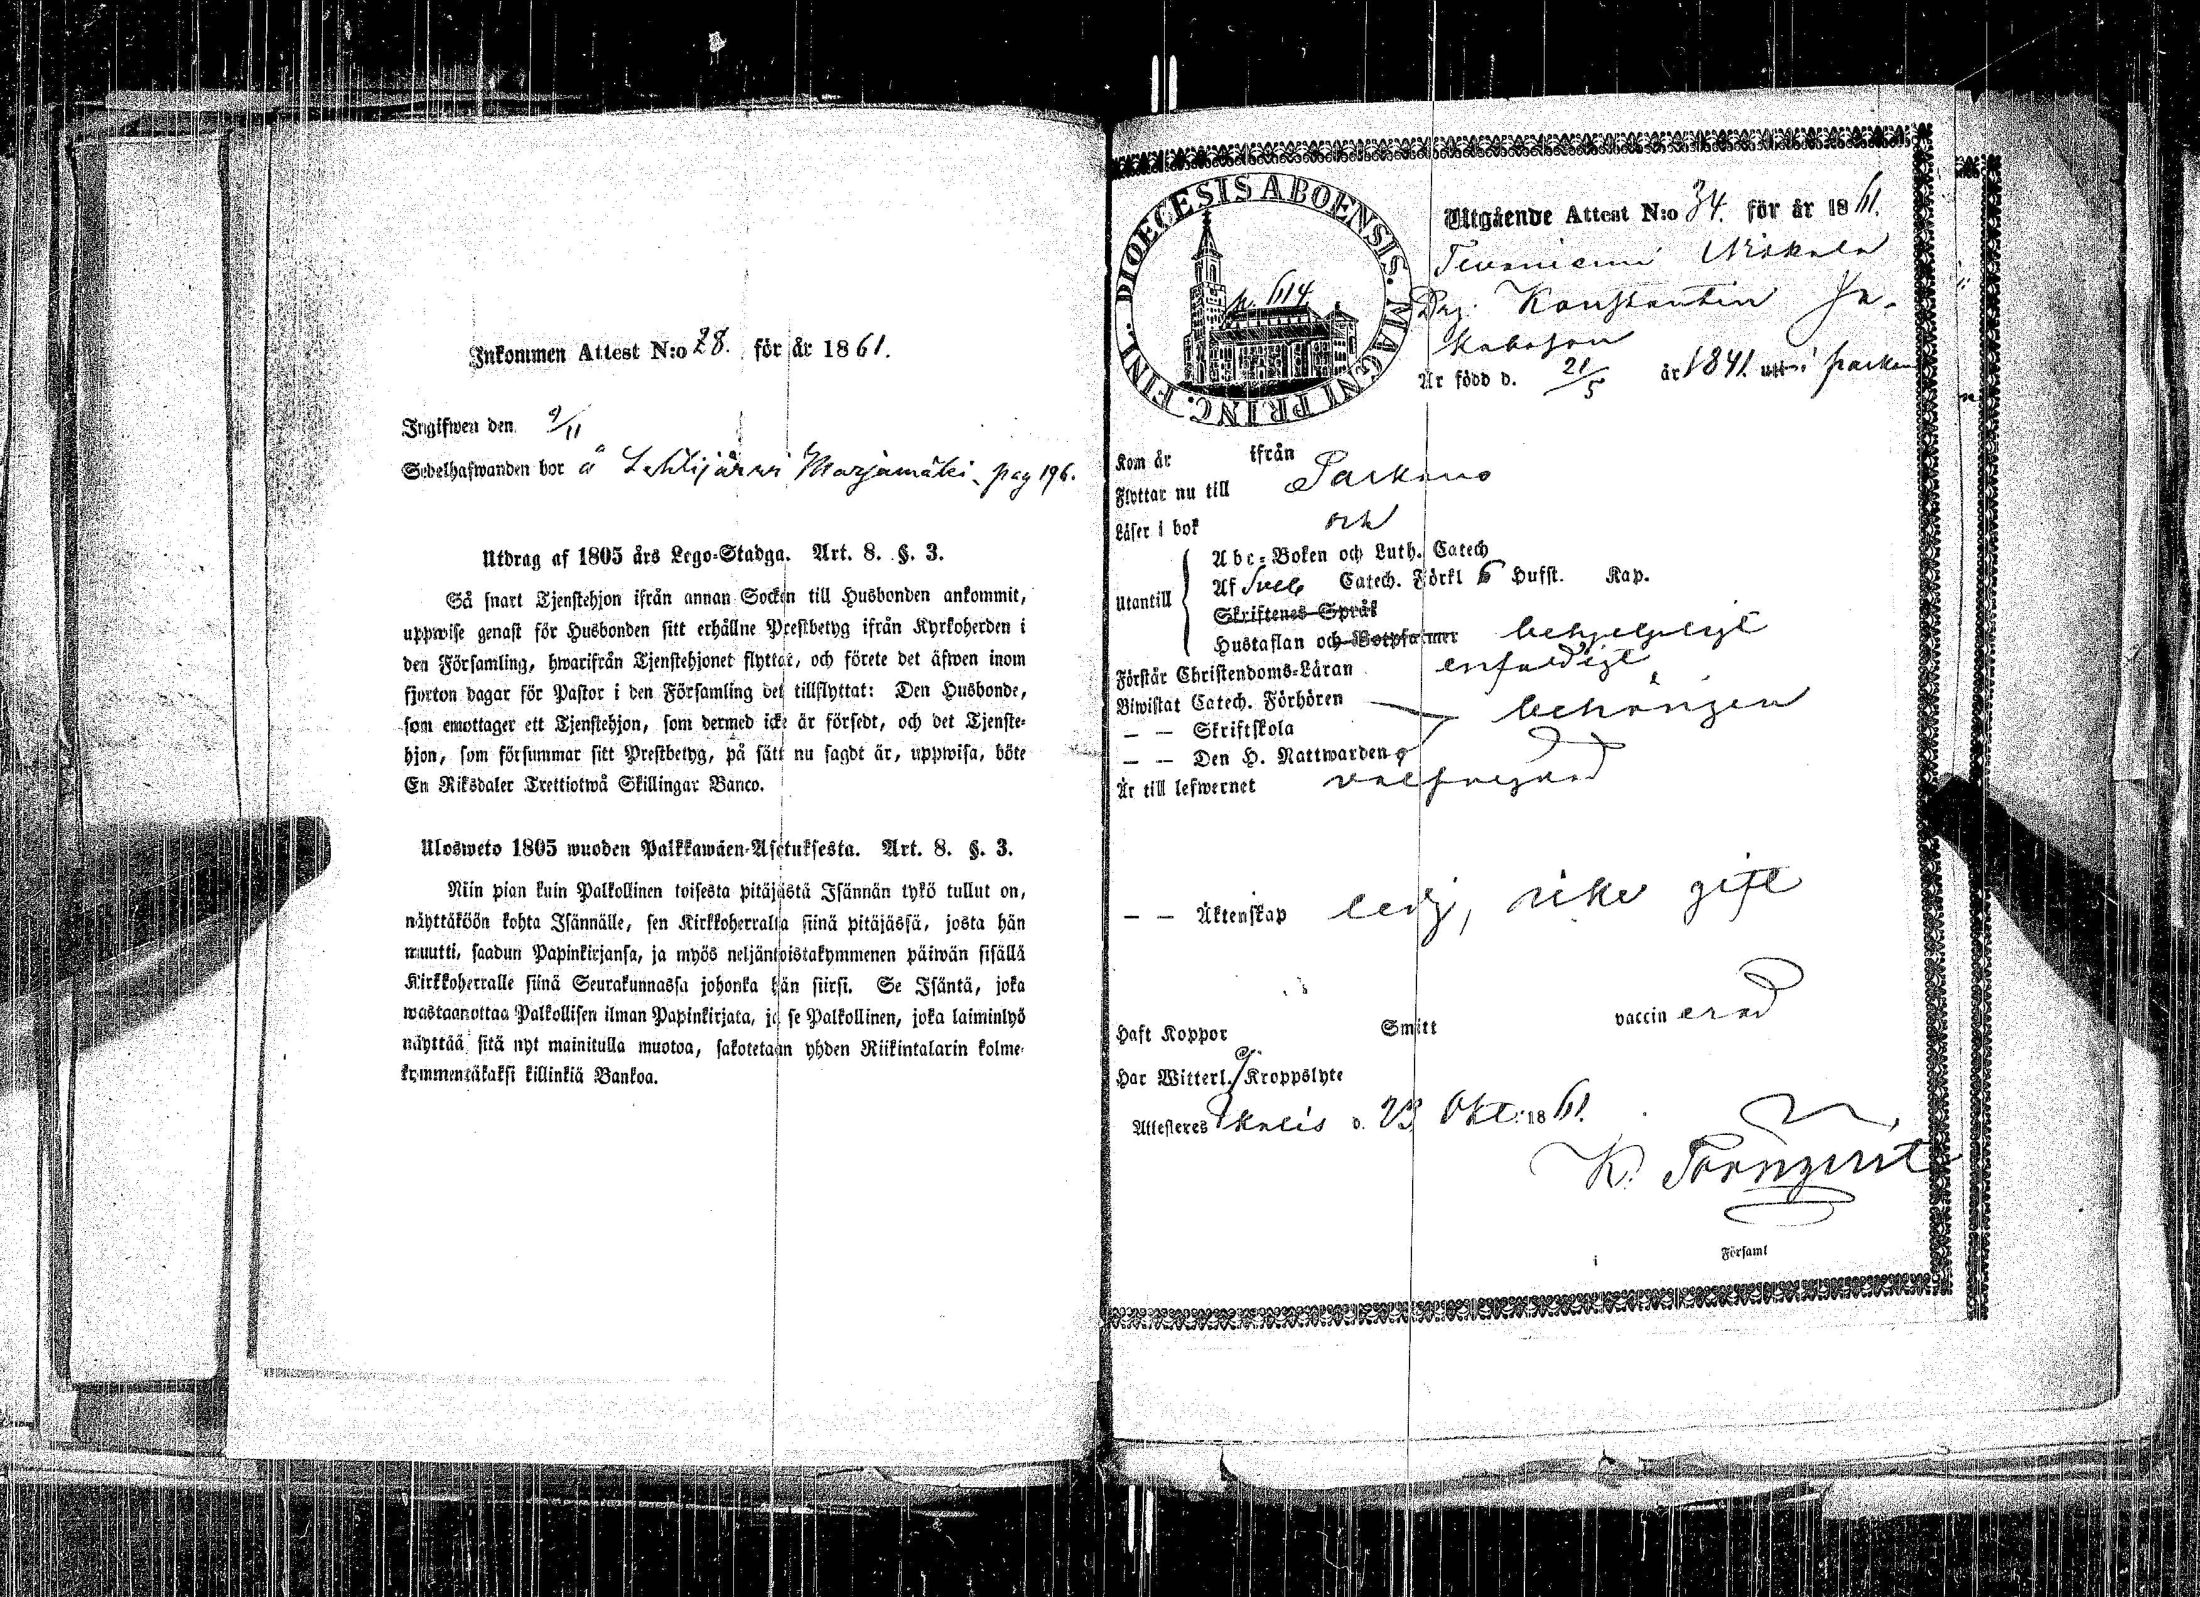 Inkommen Attest N:o 28. för år 1861.
Ingifwen den 9/11
Sedelhafwanden bor å Lehtijärwi Marjamäki, pag 196.
Utdrag af 1805 års Lego-Stadga. Art. 8. §. 3.
Så snart Tjenstehjon ifrån annan Socken till Husbonden ankommit,
uppwise genast för Husbonden sitt erhållne Prestbetyg ifrån Kyrkoherden i
den Församling, hwarifrån Tjenstehjonet flyttat, och förete det äfwen inom
fjorton dagar för Pastor i den Församling det tillflyttat: Den Husbonde,
som emottager ett Tjenstehjon, som dermed icke är försedt, och det Tjenste-
hjon, som försummar sitt Prestbetyg, på sätt nu sagdt är, uppwisa, böte
En Riksdaler Trettiotwå Skillingar Banco.
Ulosweto 1805 wuoden Palkkawäen-Asetuksesta. Art. 8. §. 3.
Niin pian kuin Palkollinen toisesta pitäjästä Isännän tykö tullut on,
näyttäköön kohta Isännälle, sen Kirkkoherralta siinä pitäjässä, josta hän
muutti, saadun Papinkirjansa, ja myös neljäntoistakymmenen päiwän sisällä
Kirkkoherralle siinä Seurakunnassa johonka hän siirsi. Se Isäntä, joka
wastaanottaa Palkollisen ilman Papinkirjata, ja se Palkollinen, joka laiminlyö
näyttää sitä nyt mainitulla muotoa, sakotetaan yhden Riikintalarin kolme-
kymmentäkaksi killinkiä Bankoa.
DIOECESIS ABOENSIS. MAGNI PRINC. FINL.
p. 614
Utgående Attest N:o 34. för år 1861.
Niskala
Drg. Konstantin Ja-
kobsson
Är född d. 21/5 år 1841. i Parkano
Kom år ifrån
Flyttar nu till Parkano
Läser i bok och
Utantill
Abc-Boken och Luth. Catech
Af Sveb Catech. Förkl 6 Hufst. Kap.
Skriftenes Språk
Hustaflan och Botpsalmer behjelpligt
Förstår Christendoms-Läran enfaldigt
Biwistat Catech. Förhören
— — Skriftskola behörigen
— — Den H. Nattwarden
Är till lefwernet välfrejdad
— — Äktenskap ledig, icke gift
Haft Koppor Smitt vaccinerad
Har Witterl. ej Kroppslyte
Attesteras Ikalis d. 23 Okt. 1861.
K. Törnqvist
i Församl